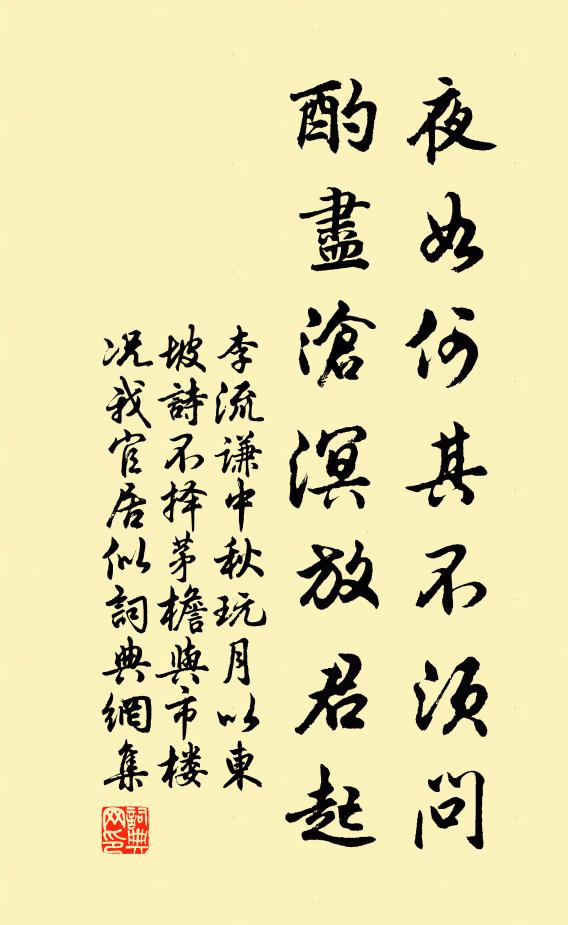 夜如何其不须问
酌盡滄溟放君起
李流谦中秋玩月以東
坡詩不择茅檐與市楼
况我官居似詞典網集
詞典
网印